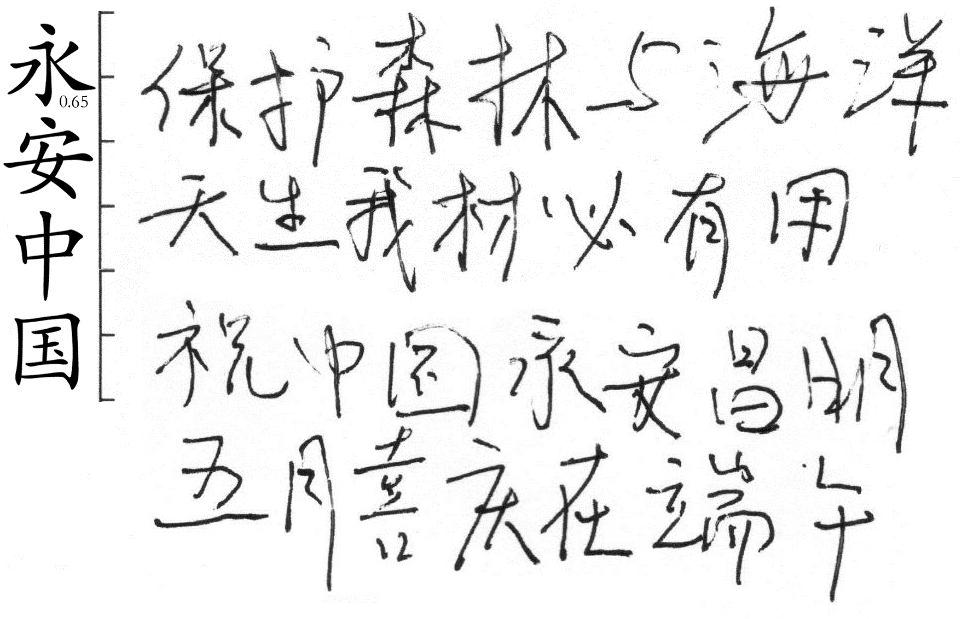 永安中国
0.65
保护森林与海洋
天生我材必有用
祝中国永安昌明
五月喜庆在端午